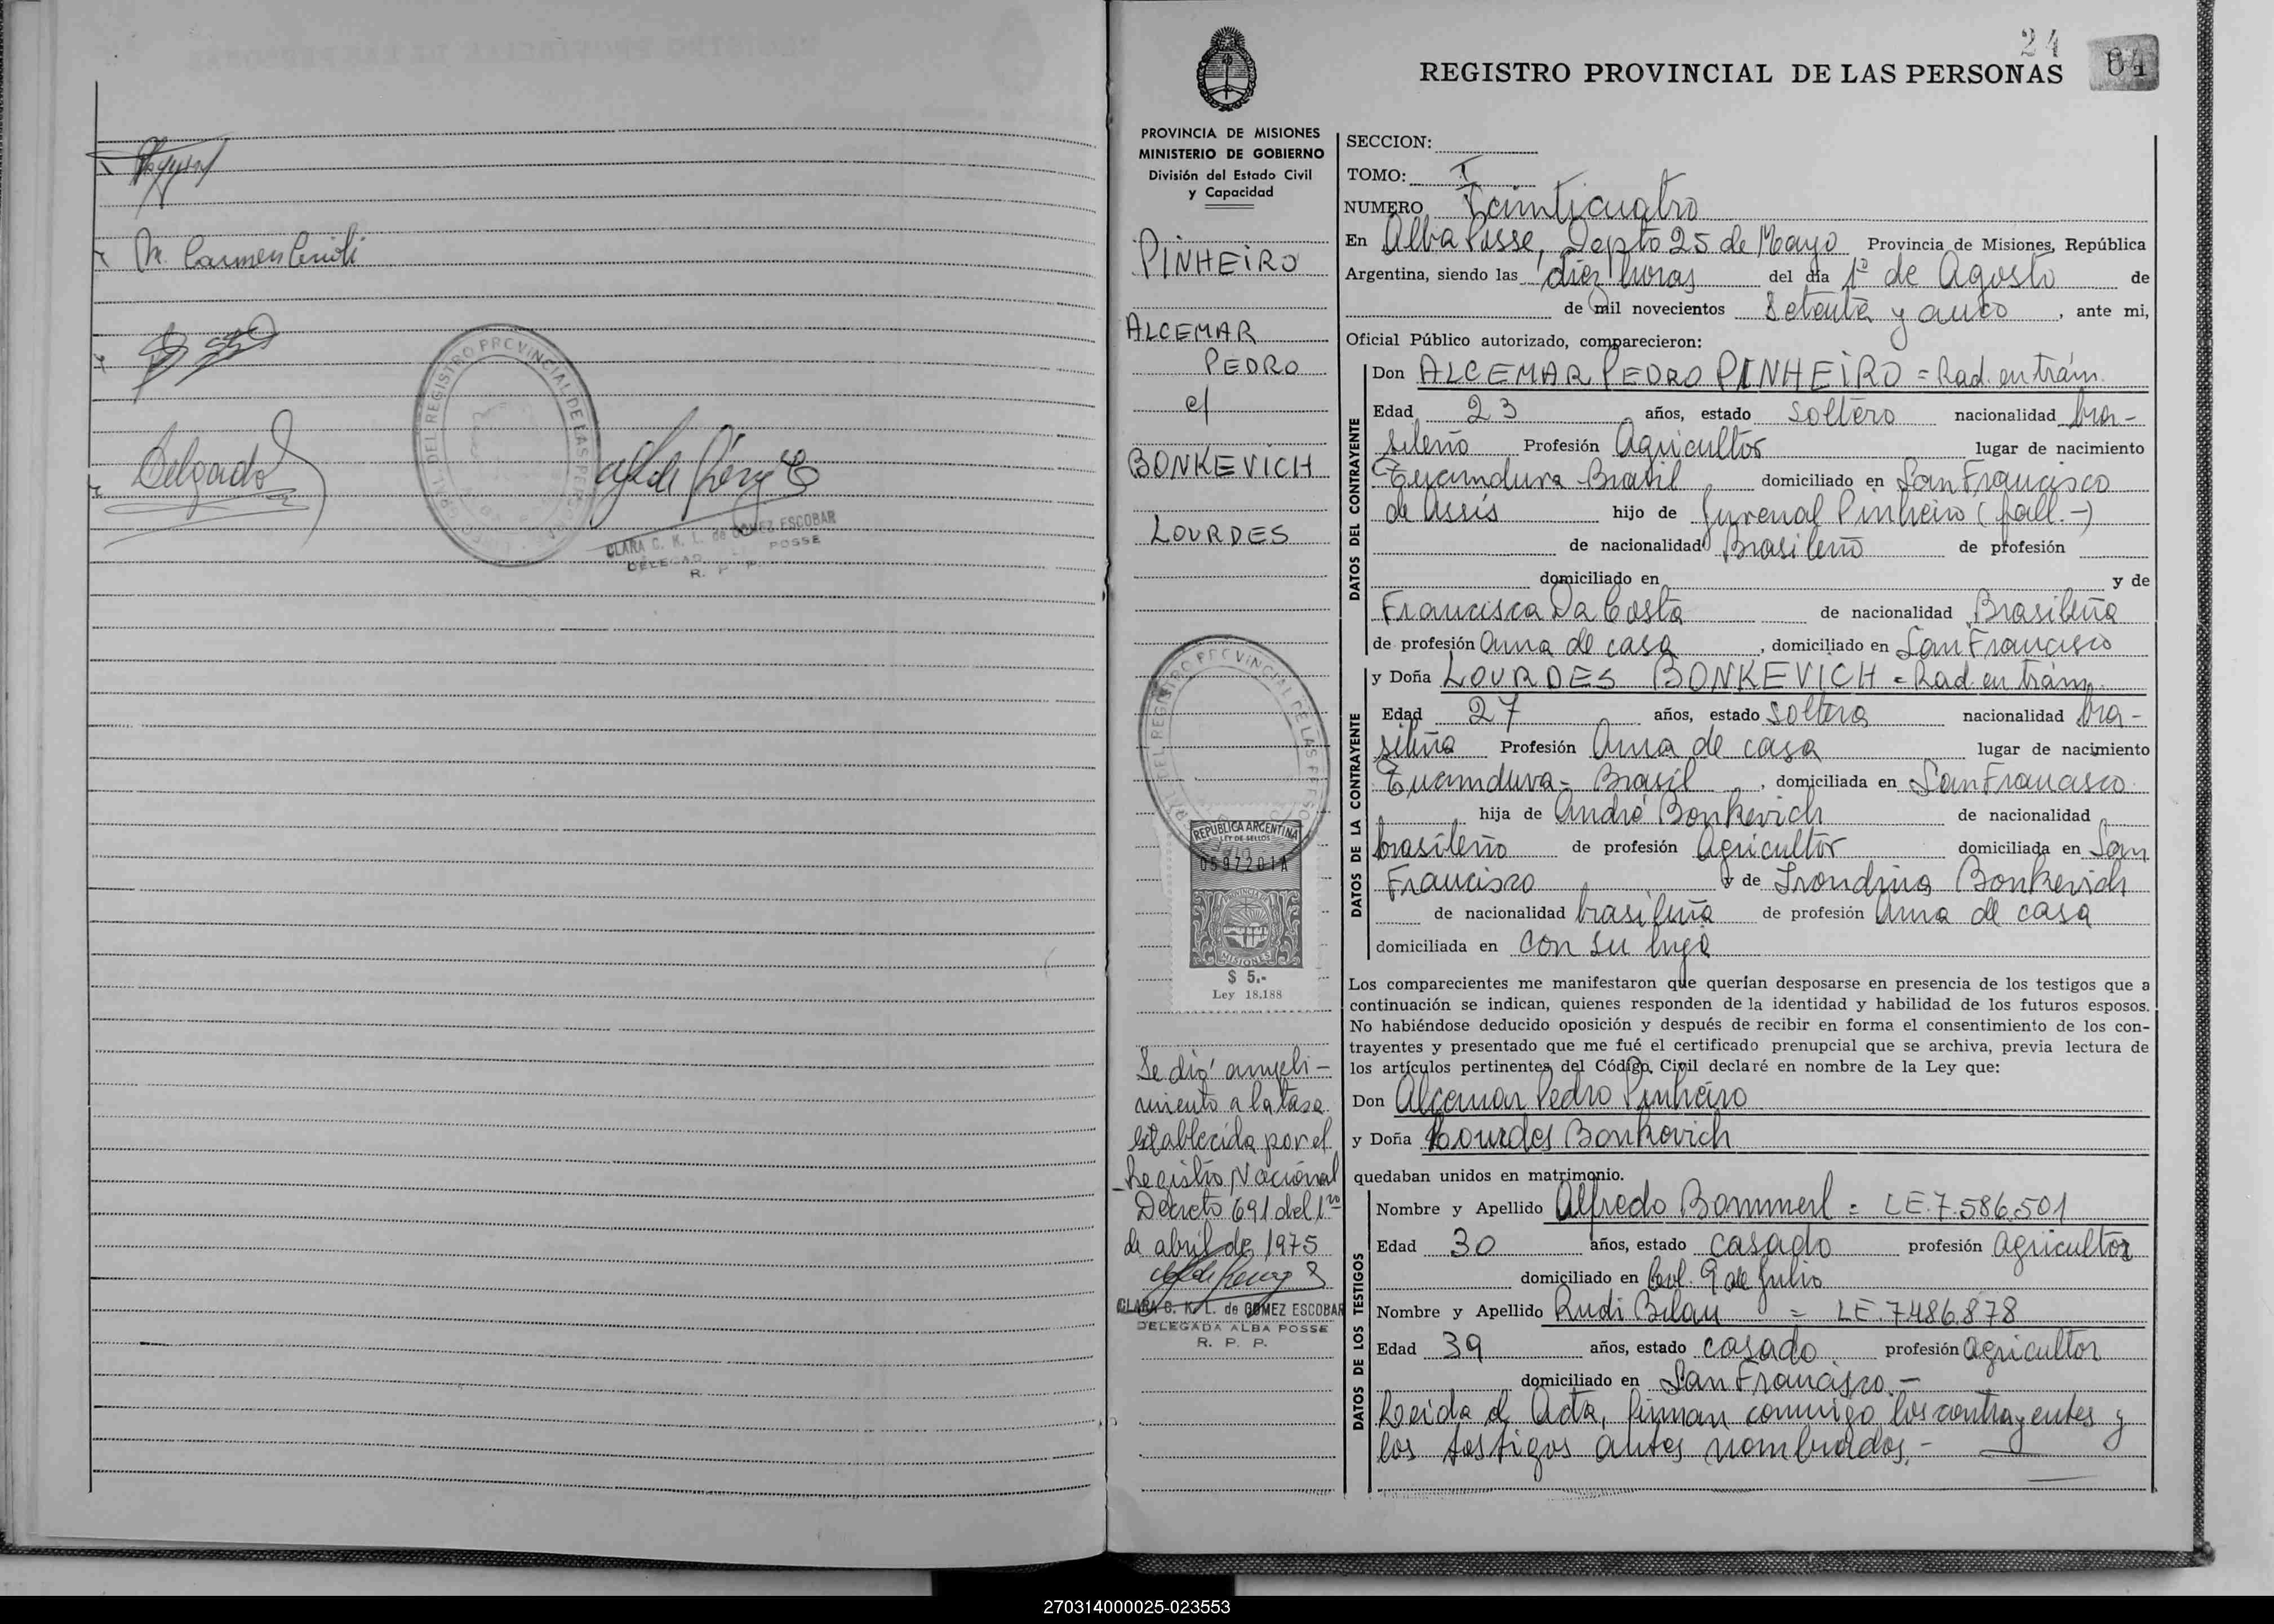 M. Carmen
Delgado
REGISTRO PROVINCIAL DE LAS PERSONAS
CLARA C. K. L. de GOMEZ ESCOBAR
POSSE
R. P. P.
24
REGISTRO PROVINCIAL DE LAS PERSONAS 64
PROVINCIA DE MISIONES
MINISTERIO DE GOBIERNO
División del Estado Civil
y Capacidad
PINHEIRO
ALCEMAR
PEDRO
c/
BONKEVICH
LOURDES
REPUBLICA ARGENTINA
LEY DE SELLOS
0597201A
MISIONES
$ 5.-
Ley 18.188
Se dió cumpli-
miento a la tasa
establecida por el
Registro Nacional
Decreto 691 del 1ro
de abril de 1975
CLARA C. K. L. de GOMEZ ESCOBAR
DELEGADA ALBA POSSE
R. P. P.
SECCION:
TOMO: I
NUMERO Veinticuatro
En Alba Posse, Depto 25 de Mayo Provincia de Misiones, República
Argentina, siendo las diez horas del día 1º de Agosto de
de mil novecientos Setenta y cinco , ante mi,
Oficial Público autorizado, comparecieron:
DATOS DEL CONTRAYENTE
Don ALCEMAR PEDRO PINHEIRO = Rad. en trám.
Edad 23 años, estado soltero nacionalidad bra-
sileño Profesión Agricultor lugar de nacimiento
Tucunduva Brasil domiciliado en San Francisco
de Assis hijo de Juvenal Pinheiro (fall.-)
de nacionalidad Brasileño de profesión
domiciliado en y de
Francisca Da Costa de nacionalidad Brasileña
de profesión Ama de casa , domiciliado en San Francisco
DATOS DE LA CONTRAYENTE
y Doña LOURDES BONKEVICH = Rad. en trám.
Edad 27 años, estado Soltera nacionalidad bra-
sileña Profesión Ama de casa lugar de nacimiento
Tucunduva - Brasil , domiciliada en San Francisco
hija de André Bonkevich de nacionalidad
brasileño de profesión Agricultor domiciliada en San
Francisco y de Bonkevich
de nacionalidad brasileña de profesión Ama de casa
domiciliada en con su hija
Los comparecientes me manifestaron que querían desposarse en presencia de los testigos que a
continuación se indican, quienes responden de la identidad y habilidad de los futuros esposos.
No habiéndose deducido oposición y después de recibir en forma el consentimiento de los con-
trayentes y presentado que me fué el certificado prenupcial que se archiva, previa lectura de
los artículos pertinentes del Código Civil declaré en nombre de la Ley que:
Don Alcemar Pedro Pinheiro
y Doña Lourdes Bonkevich
quedaban unidos en matrimonio.
DATOS DE LOS TESTIGOS
Nombre y Apellido Alfredo Bommerl = LE.7.586.501
Edad 30 años, estado casado profesión agricultor
domiciliado en Col. 9 de Julio
Nombre y Apellido Rudi Belau = LE.7486.878
Edad 39 años, estado casado profesión agricultor
domiciliado en San Francisco.-
Leida el Acta, firman conmigo los contrayentes y
los testigos antes nombrados.-
270314000025-023553